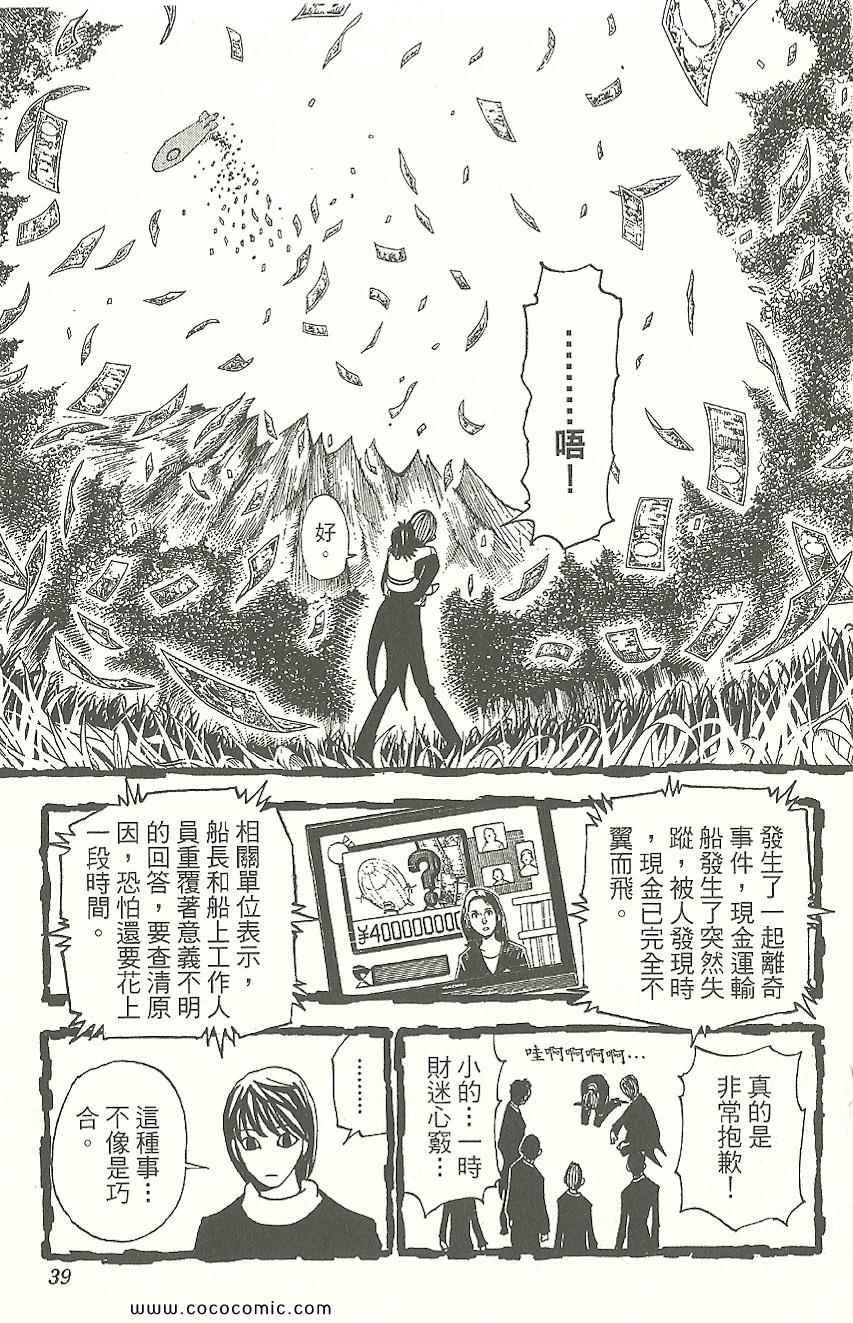 …………唔！
好。
發生了一起離奇
事件，現金運輸
船發生了突然失
蹤，被人發現時
，現金已完全不
翼而飛。
¥40000000
相關單位表示，
船長和船上工作人
員重覆著意義不明
的回答，要查清原
因，恐怕還要花上
一段時間。
真的是
非常抱歉！
哇啊啊啊啊…
小的…一時
財迷心竅…
………
這種事…
不像是巧
合。
39
www.cococomic.com